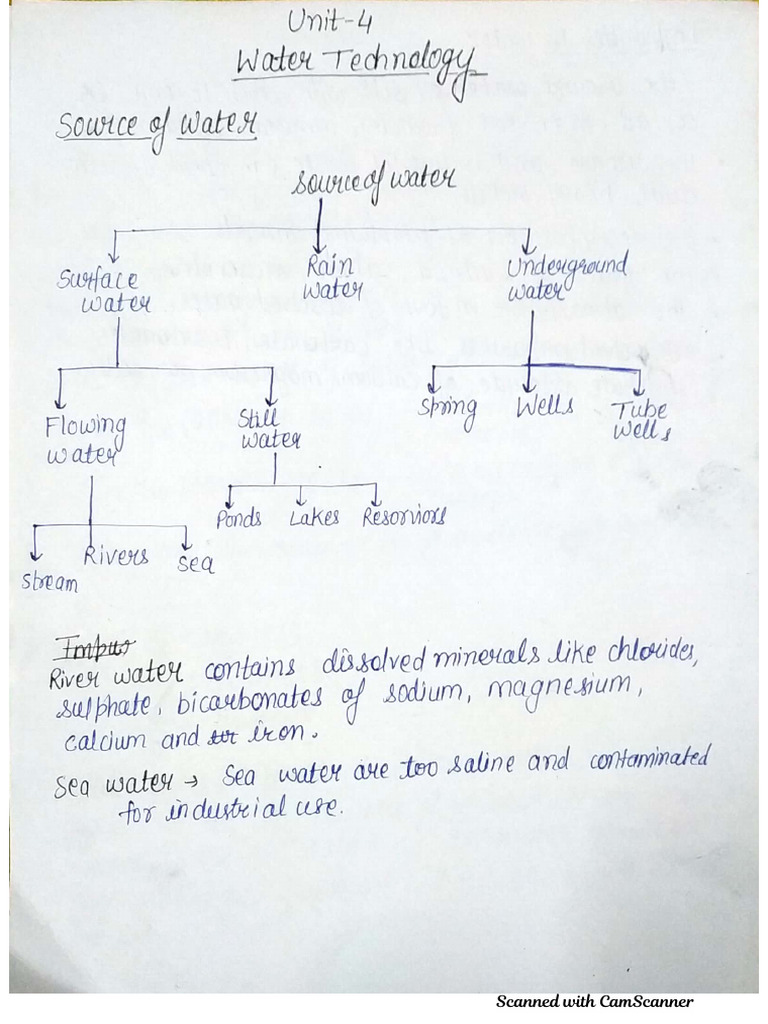 Unit-4
Water Technology
Source of Water
Source of water
Surface water
Rain water
Underground water
Flowing water
Still water
Spring
Wells
Tube Wells
Ponds
Lakes
Resorviors
Stream
Rivers
Sea
River water contains dissolved minerals like chlorides,
sulphate, bicarbonates of sodium, magnesium,
calcium and iron.
Sea water → Sea water are too saline and contaminated
for industrial use.
Scanned with CamScanner